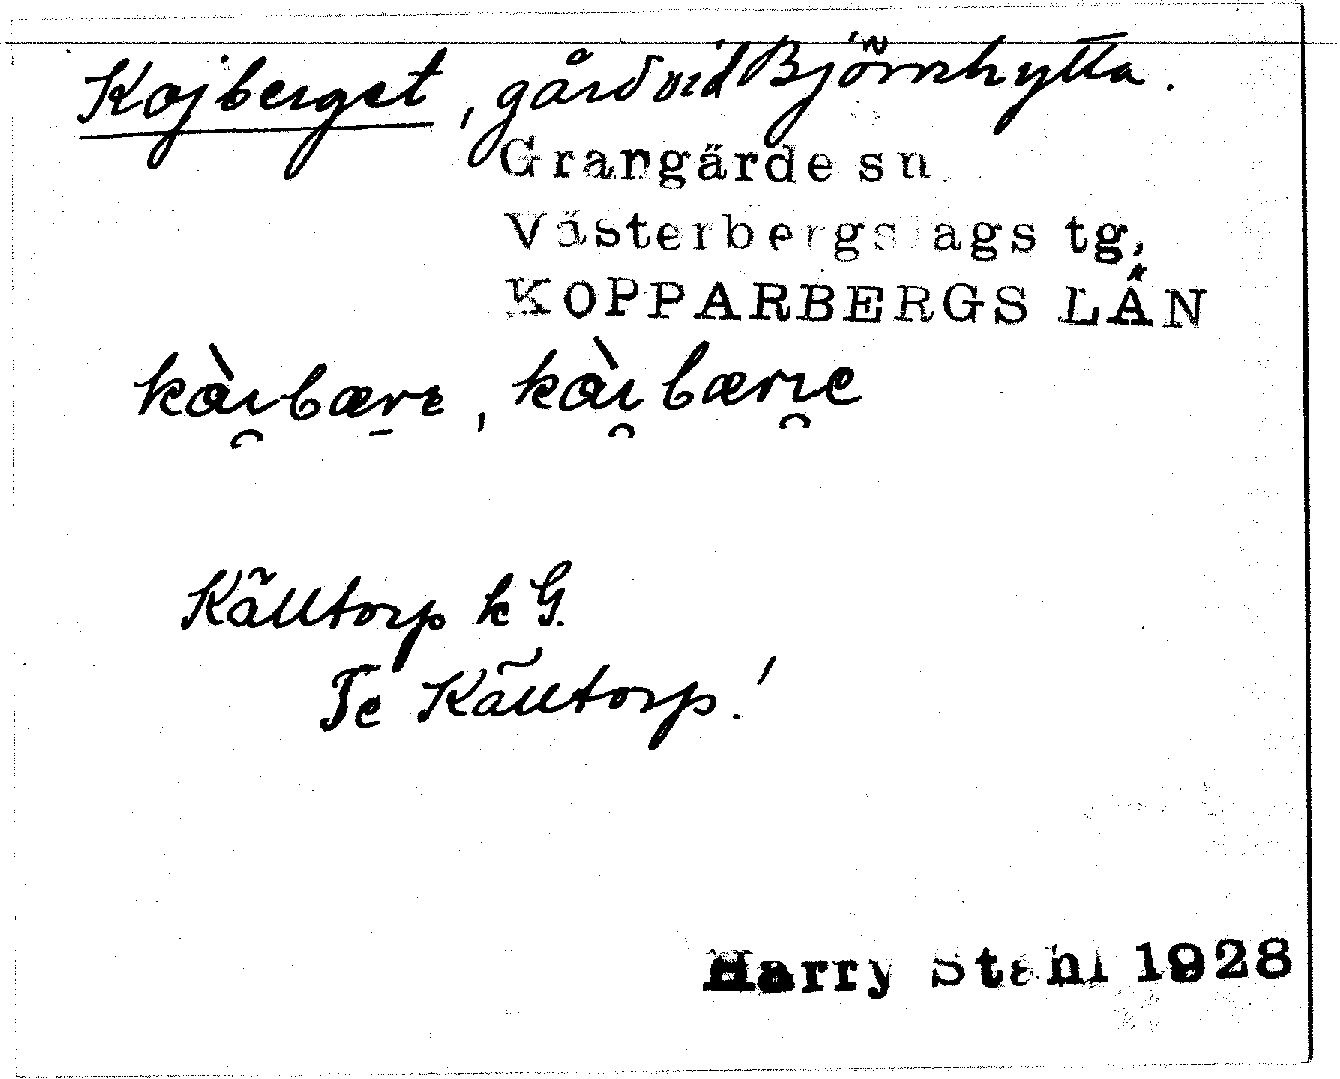 Kojberget, gård vid Björnhytta.
Grangärde sn
Västerbergslags tg,
KOPPARBERGS LÄN
kòi̯bær̠e, kòi̯bæri̯e
Källtorp k G.
Te Källtorp!
Harry Ståhl 1928